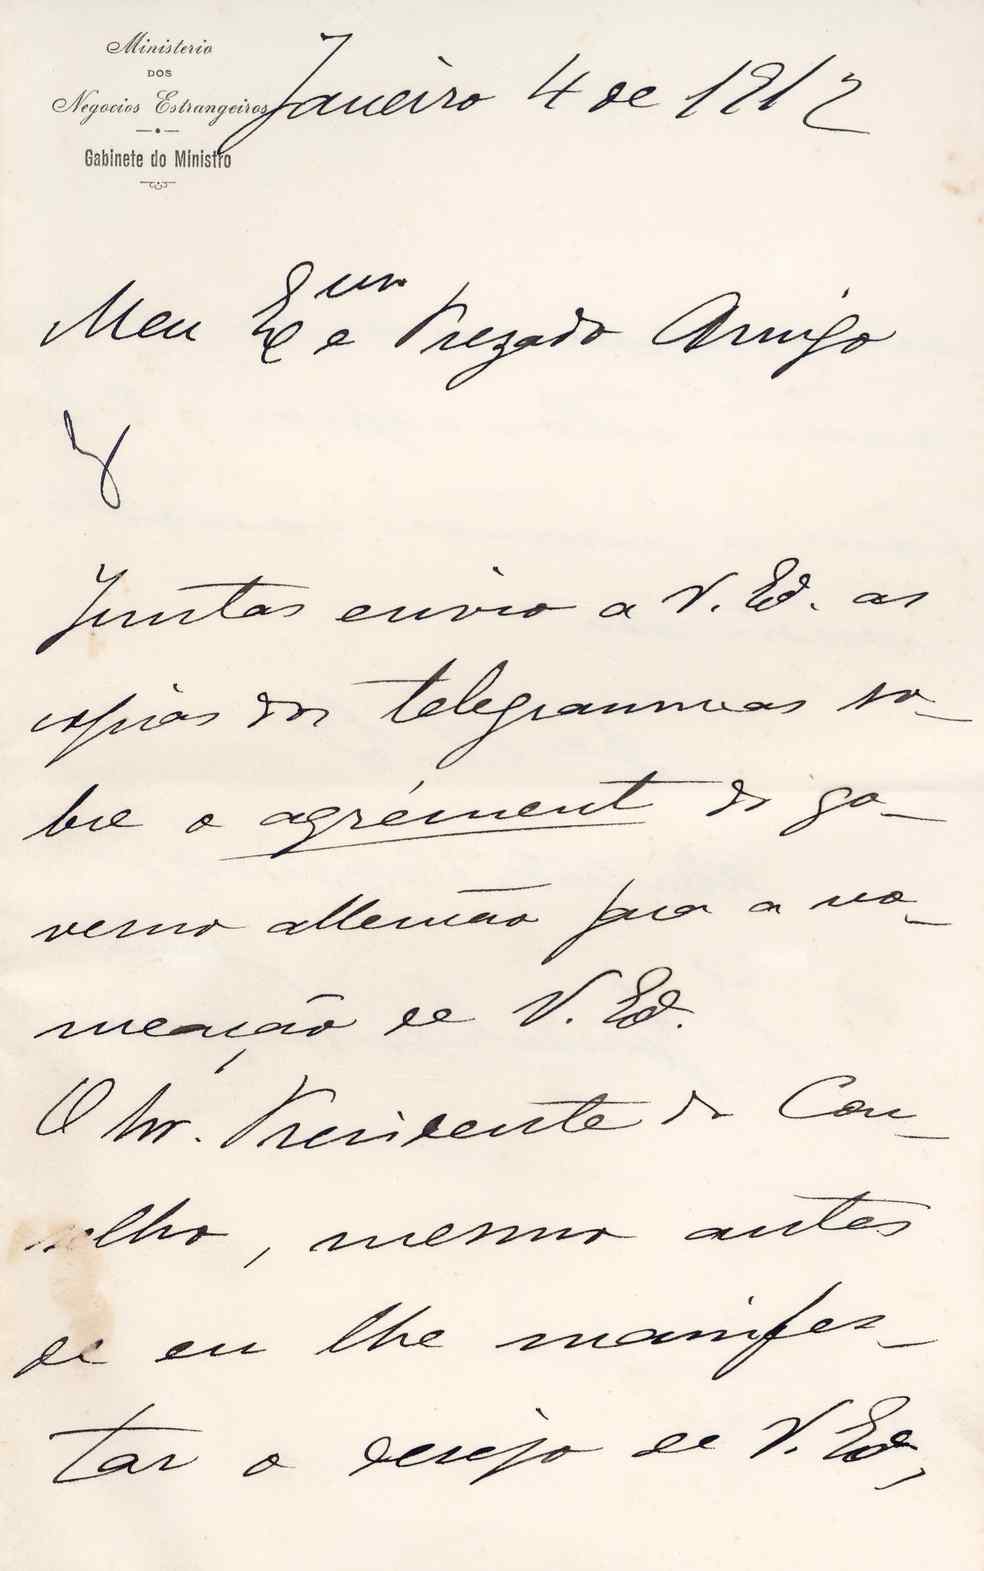 Ministerio
DOS
Negocios Estrangeiros
Gabinete do Ministro
Janeiro 4 de 1912
Meu Exmo e Prezado Amigo
Juntas envio a V. Exª. as
copias dos telegrammas so-
bre o agrément do go-
verno allemão para a no-
meação de V. Exª.
O Snr. Presidente do Con-
selho, mesmo antes
de eu lhe manifes-
tar o desejo de V. Exª,